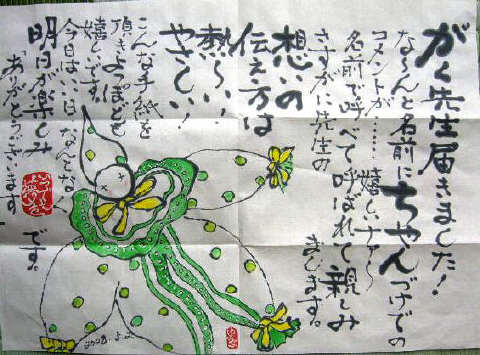 がく先生届きました！
な〜んと名前にちゃんづけでの
コメントが……嬉しいナ〜
名前で呼べて呼ばれて親しみ
まします。
さすがに先生の
想いの
伝え方は
熱〜い！
やさしい！
こんな手紙を
頂きよっぽども
嬉しいです。
今日はいい日なんだな！
明日が楽しみです。
ありがとうございます